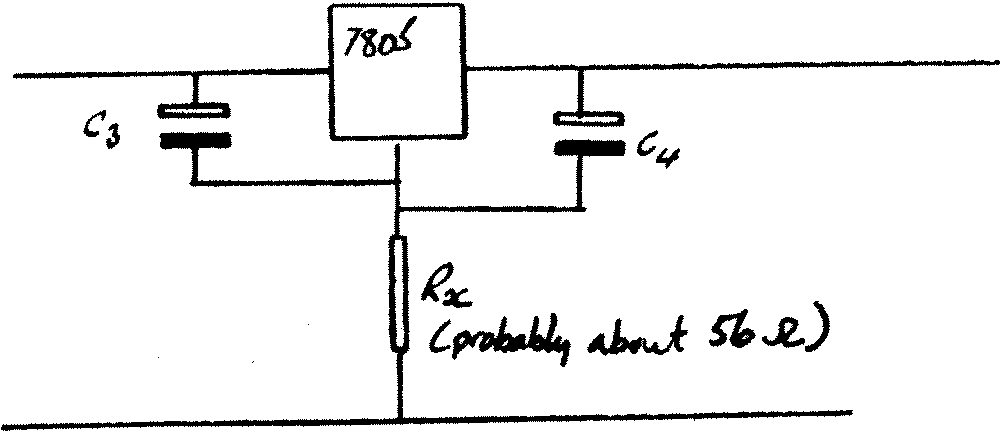 7805
C3
C4
Rx
(probably about 56 Ω)